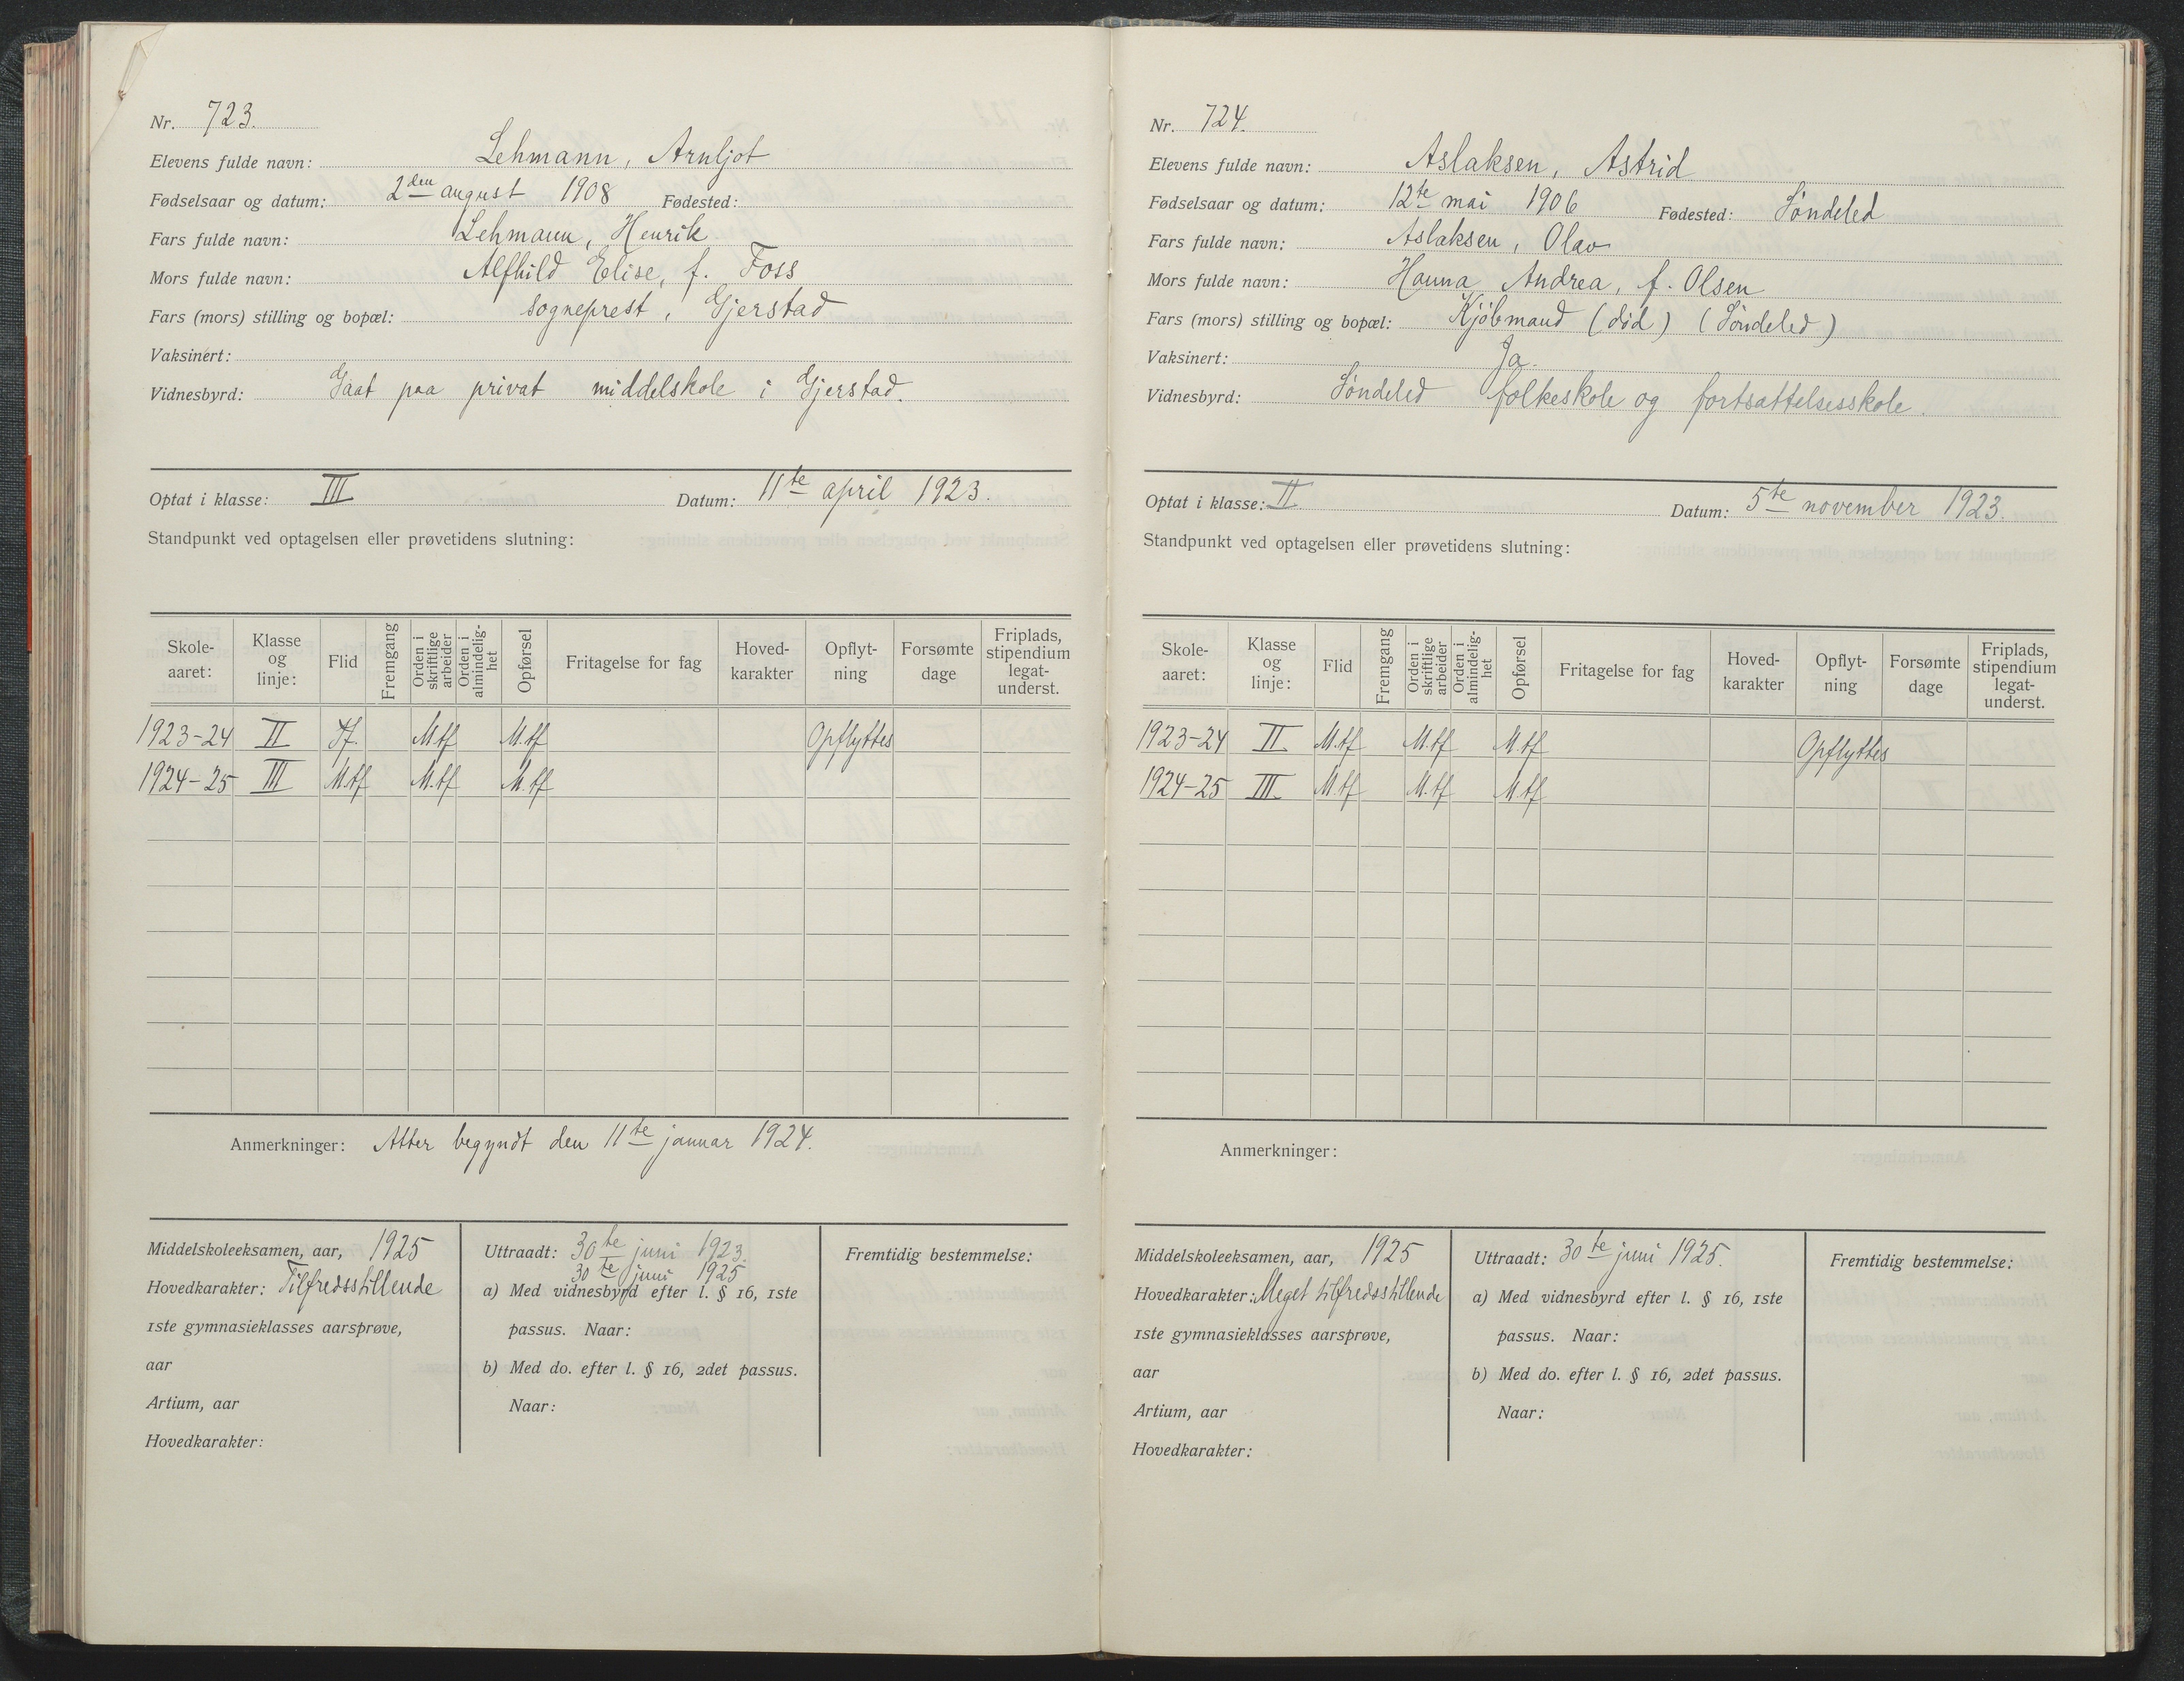 Nr. 723.
Elevens fulde navn: Lehmann, Arnljot
Fødselsaar og datum: 2den august 1908 Fødested:
Fars fulde navn: Lehmann, Henrik
Mors fulde navn: Alfhild Elise, f. Foss
Fars (mors) stilling og bopæl: sogneprest, Gjerstad
Vaksinert:
Vidnesbyrd: Gaat paa privat middelskole i Gjerstad.
Optat i klasse: III Datum: 11te april 1923.
Standpunkt ved optagelsen eller prøvetidens slutning:
Skole-aaret: Klasse og linje: Flid Fremgang Orden i skriftlige arbeider Orden i almindelig-het Opførsel Fritagelse for fag Hoved-karakter Opflyt-ning Forsømte dage Friplads, stipendium legat-underst.
1923-24 II Tf. M.tf M.tf Opflyttes
1924-25 III M.tf M.tf M.tf
Anmerkninger: Atter begyndt den 11te januar 1924.
Middelskoleeksamen, aar, 1925
Hovedkarakter: Tilfredsstillende
1ste gymnasieklasses aarsprøve,
aar
Artium, aar
Hovedkarakter:
Uttraadt: 30te juni 1923.
30te juni 1925
a) Med vidnesbyrd efter l. § 16, 1ste
passus. Naar:
b) Med do. efter l. § 16, 2det passus.
Naar:
Fremtidig bestemmelse:
Nr. 724.
Elevens fulde navn: Aslaksen, Astrid
Fødselsaar og datum: 12te mai 1906 Fødested: Søndeled
Fars fulde navn: Aslaksen, Olav
Mors fulde navn: Hanna Andrea, f. Olsen
Fars (mors) stilling og bopæl: Kjøbmand (død) (Søndeled)
Vaksinert: Ja.
Vidnesbyrd: Søndeled folkeskole og fortsættelsesskole.
Optat i klasse: II Datum: 5te november 1923.
Standpunkt ved optagelsen eller prøvetidens slutning:
Skole-aaret: Klasse og linje: Flid Fremgang Orden i skriftlige arbeider Orden i almindelig-het Opførsel Fritagelse for fag Hoved-karakter Opflyt-ning Forsømte dage Friplads, stipendium legat-underst.
1923-24 II M.tf M.tf M.tf Opflyttes
1924-25 III M.tf M.tf M.tf
Anmerkninger:
Middelskoleeksamen, aar, 1925
Hovedkarakter: Meget tilfredsstillende
1ste gymnasieklasses aarsprøve,
aar
Artium, aar
Hovedkarakter:
Uttraadt: 30te juni 1925.
a) Med vidnesbyrd efter l. § 16, 1ste
passus. Naar:
b) Med do. efter l. § 16, 2det passus.
Naar:
Fremtidig bestemmelse: